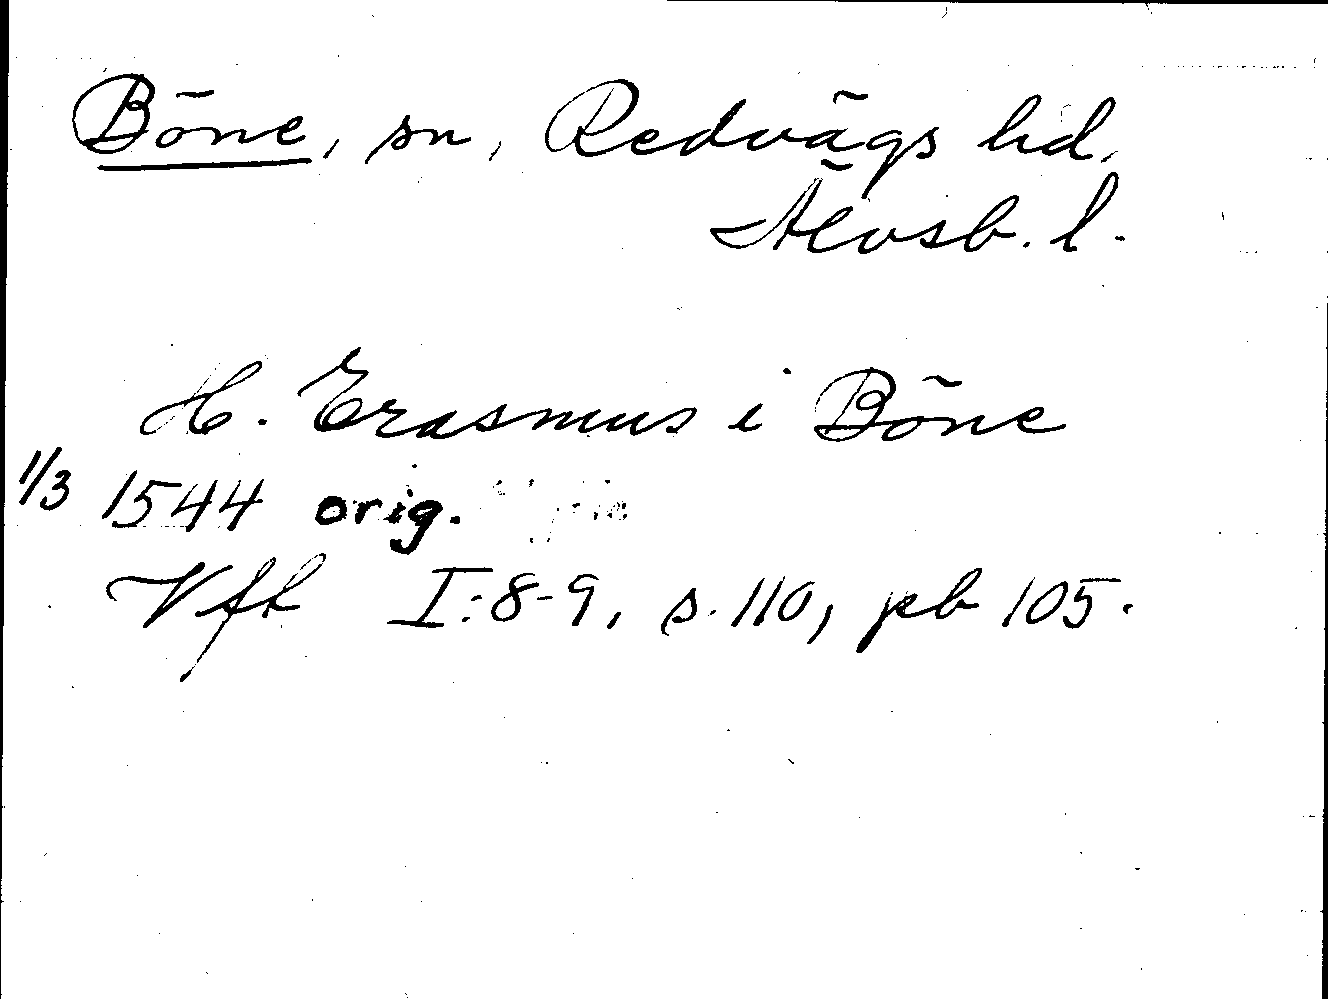 Böne, sn, Redvägs hd.
Älvsb. l.
H. Erasmus i Böne
1/3 1544 orig.
Vft I:8-9, s. 110, pb 105.